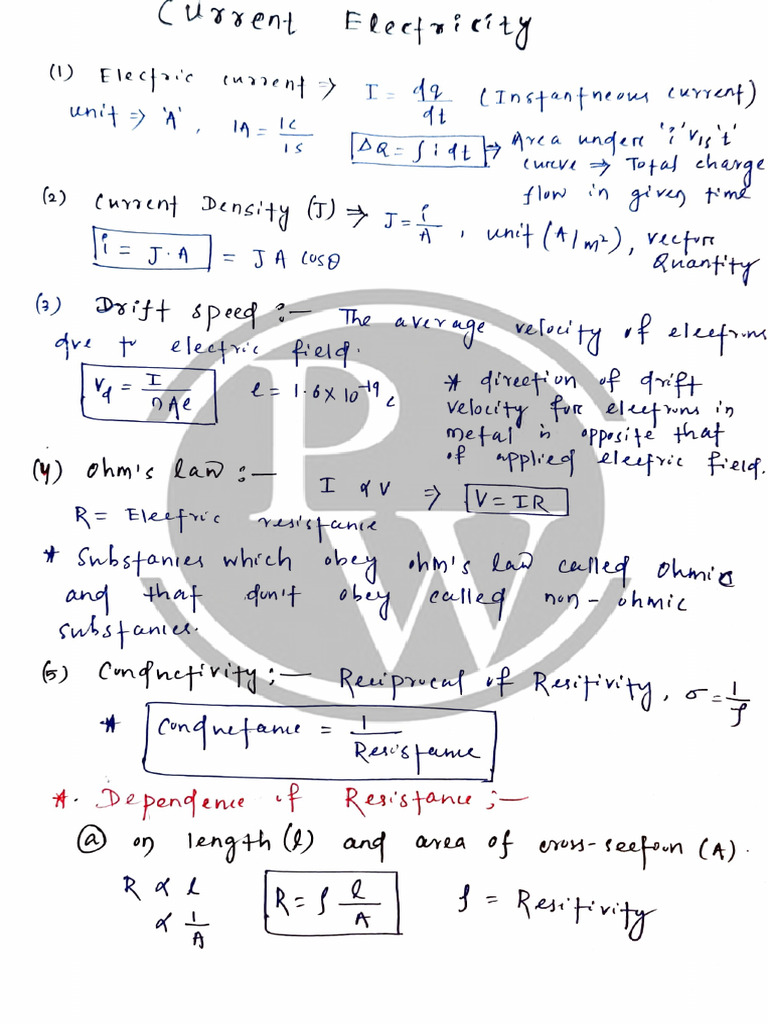 Current Electricity
(1) Electric current ⇒ I = dq/dt (Instantneous current)
unit ⇒ 'A', 1A = 1C/1S  ΔQ = ∫i dt ⇒ Area under 'i' v/s 't'
curve ⇒ Total charge
flow in given time
(2) Current Density (J) ⇒ J = i/A, unit (A/m²), vector
Quantity
i = J·A = JA cosθ
(3) Drift speed :— The average velocity of electrons
due to electric field.
Vd = I/nAe  e = 1.6×10⁻¹⁹ C  * direction of drift
velocity for electrons in
metal is opposite that
of applied electric field.
(4) Ohm's law :— I ∝ V ⇒ V = IR
R = Electric resistance
* Substanies which obey ohm's law called ohmic
and that don't obey called non-ohmic
substanies.
(5) Conductivity :— Reciprocal of Resitivity, σ = 1/ρ
* Conductance = 1/Resistance
*. Dependence of Resistance :—
(a) on length (l) and area of cross-section (A).
R ∝ l  R = ρ l/A  ρ = Resitivity
∝ 1/A
PW